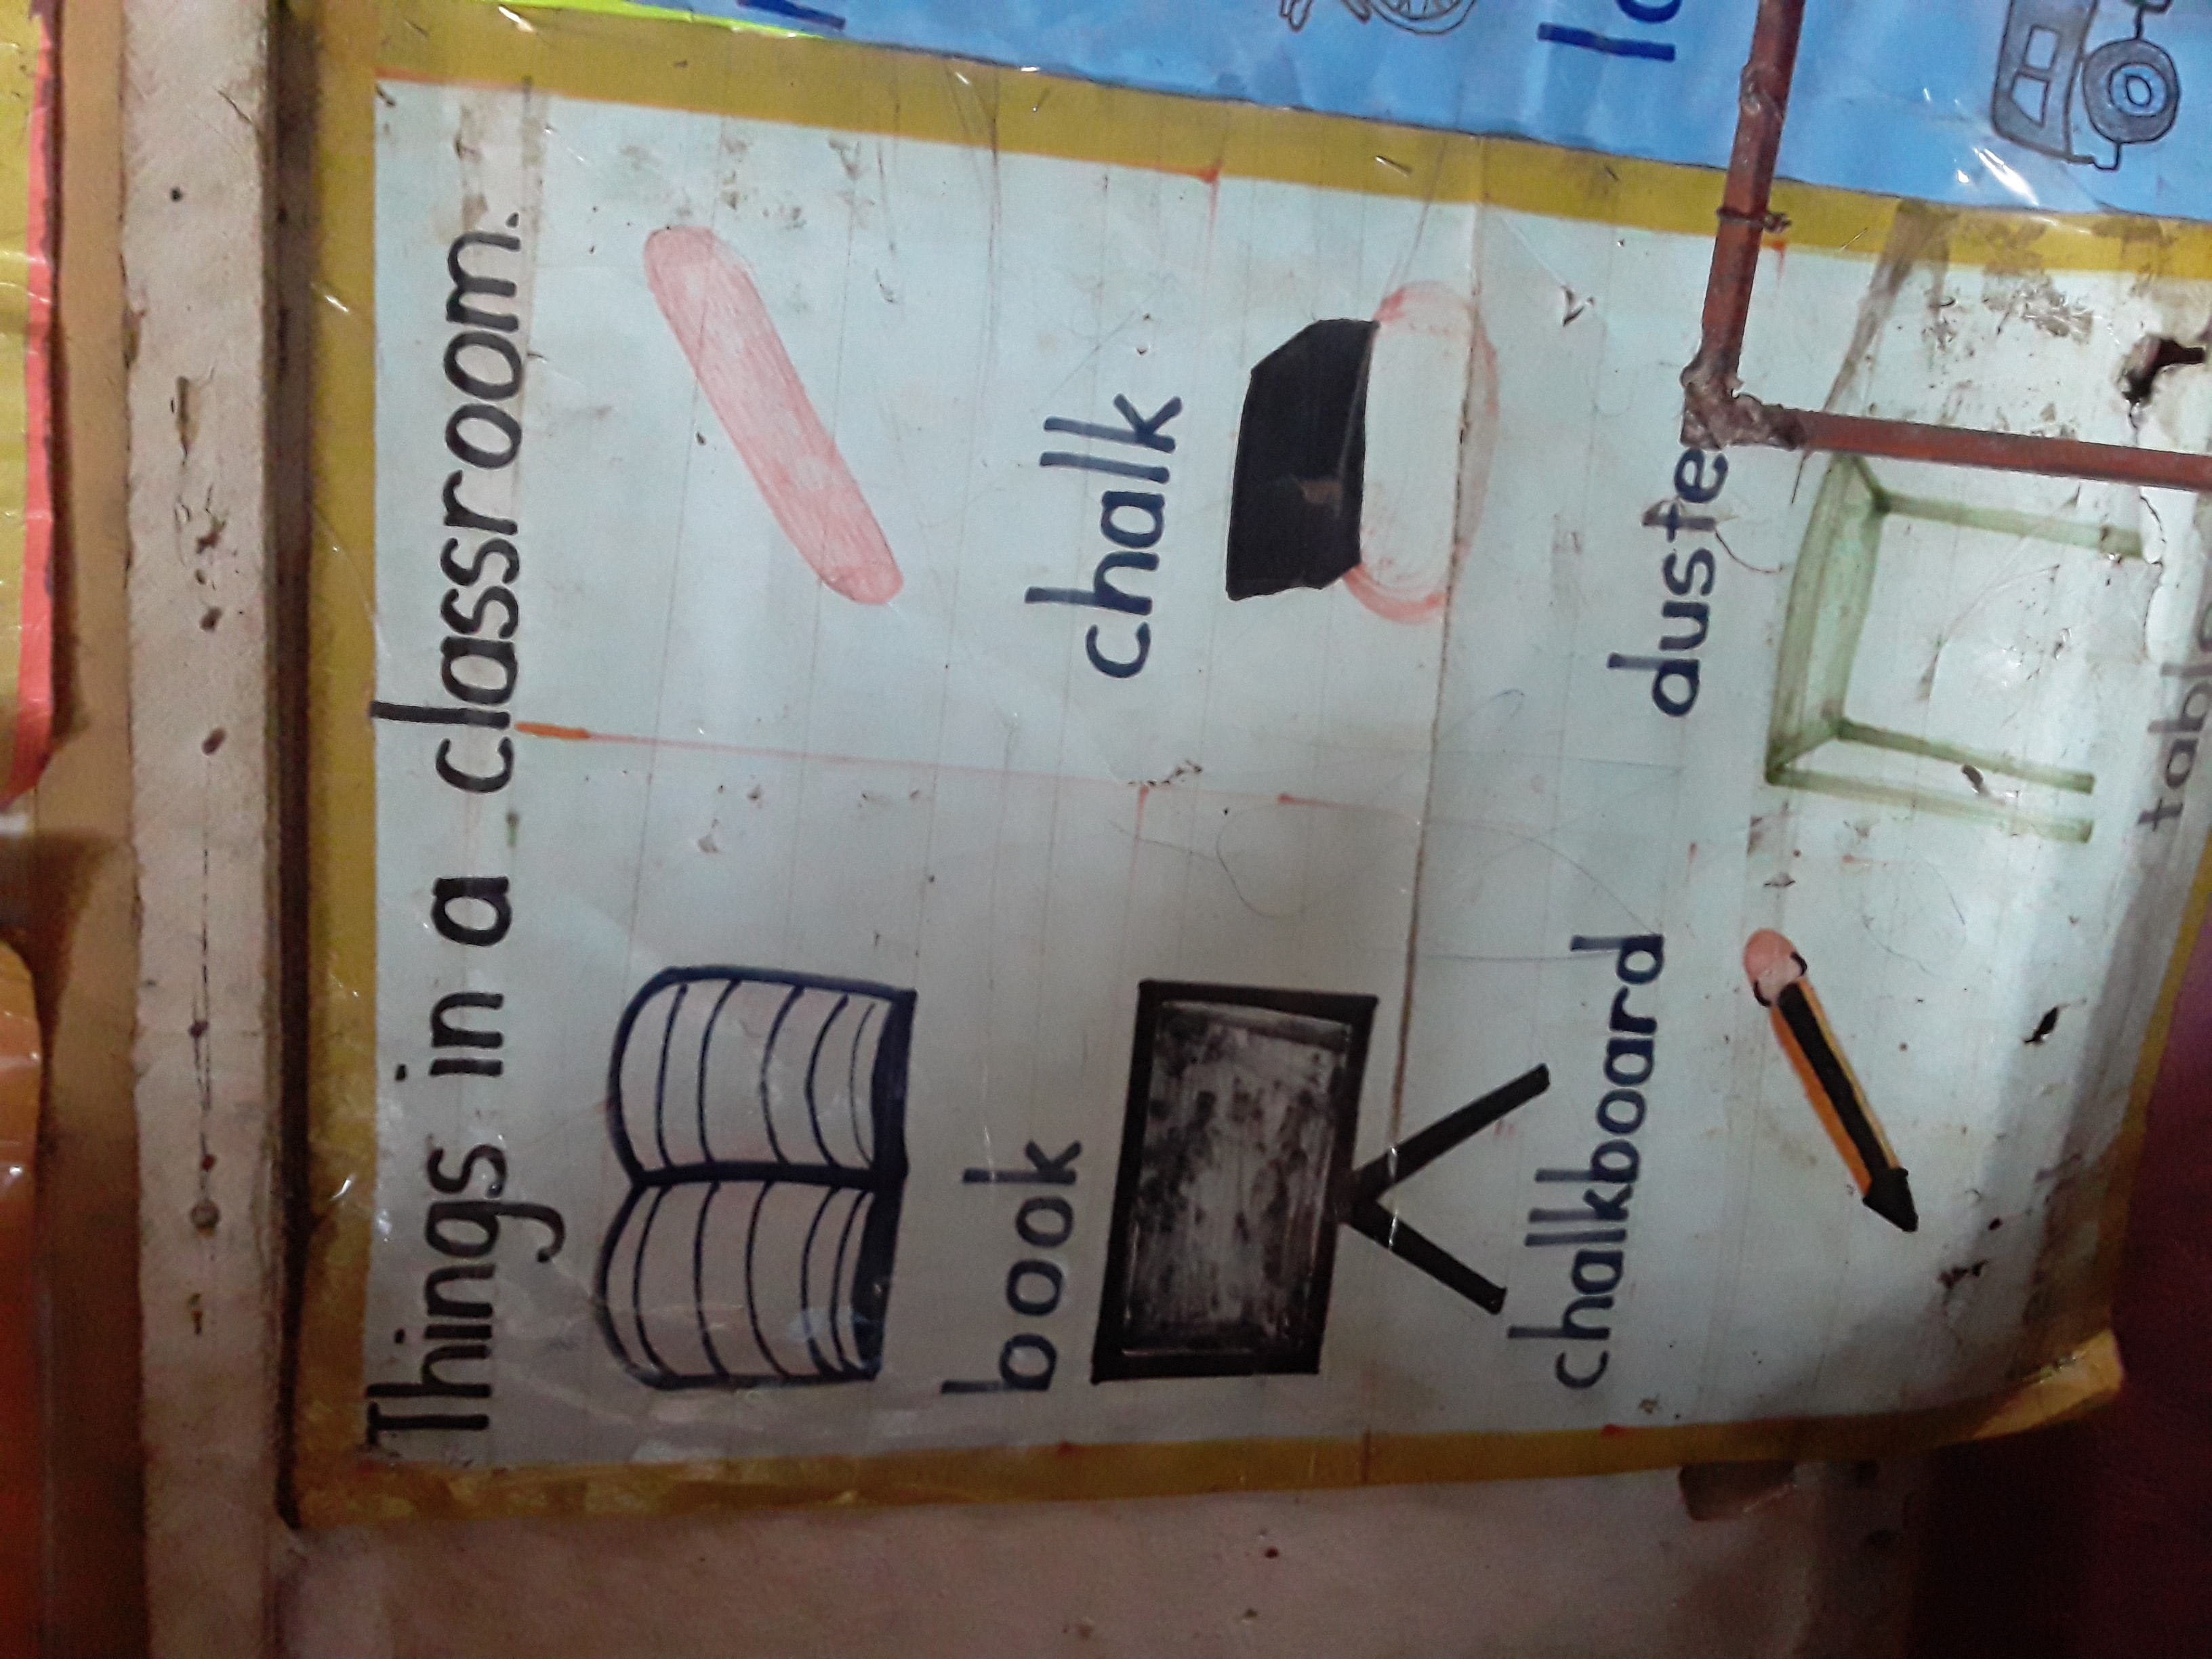 Things in a classroom.
book
chalk
chalkboard
duste
table